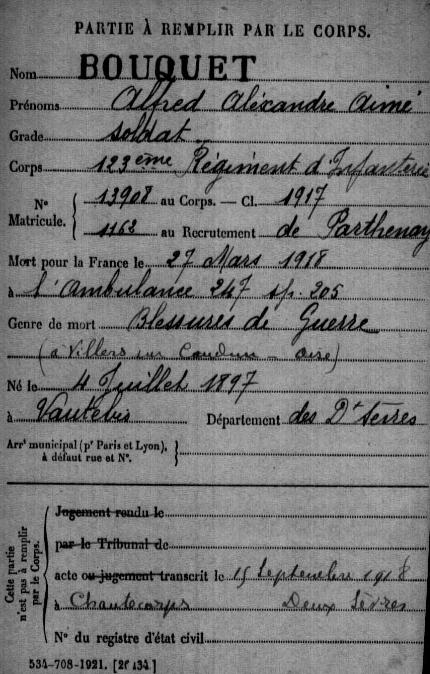 PARTIE À REMPLIR PAR LE CORPS.
Nom BOUQUET
Prénoms Alfred Aléxandre Aimé
Grade soldat
Corps 123ème Régiment d'Infanterie
N° Matricule. { 13908 au Corps. — Cl. 1917
1162 au Recrutement de Parthenay
Mort pour la France le 27 Mars 1918
à l'Ambulance 247 sp. 205
Genre de mort Blessures de Guerre
(à Villers sur Coudun - oise)
Né le 4 Juillet 1897
à Vautebis Département des Dx Sèvres
Arrt municipal (pr Paris et Lyon), à défaut rue et N°. }
Cette partie n'est pas à remplir par le Corps. {
Jugement rendu le
par le Tribunal de
acte ou jugement transcrit le 15 Septembre 1918
à Chantecorps Deux Sèvres
N° du registre d'état civil
534-708-1921. [26434]